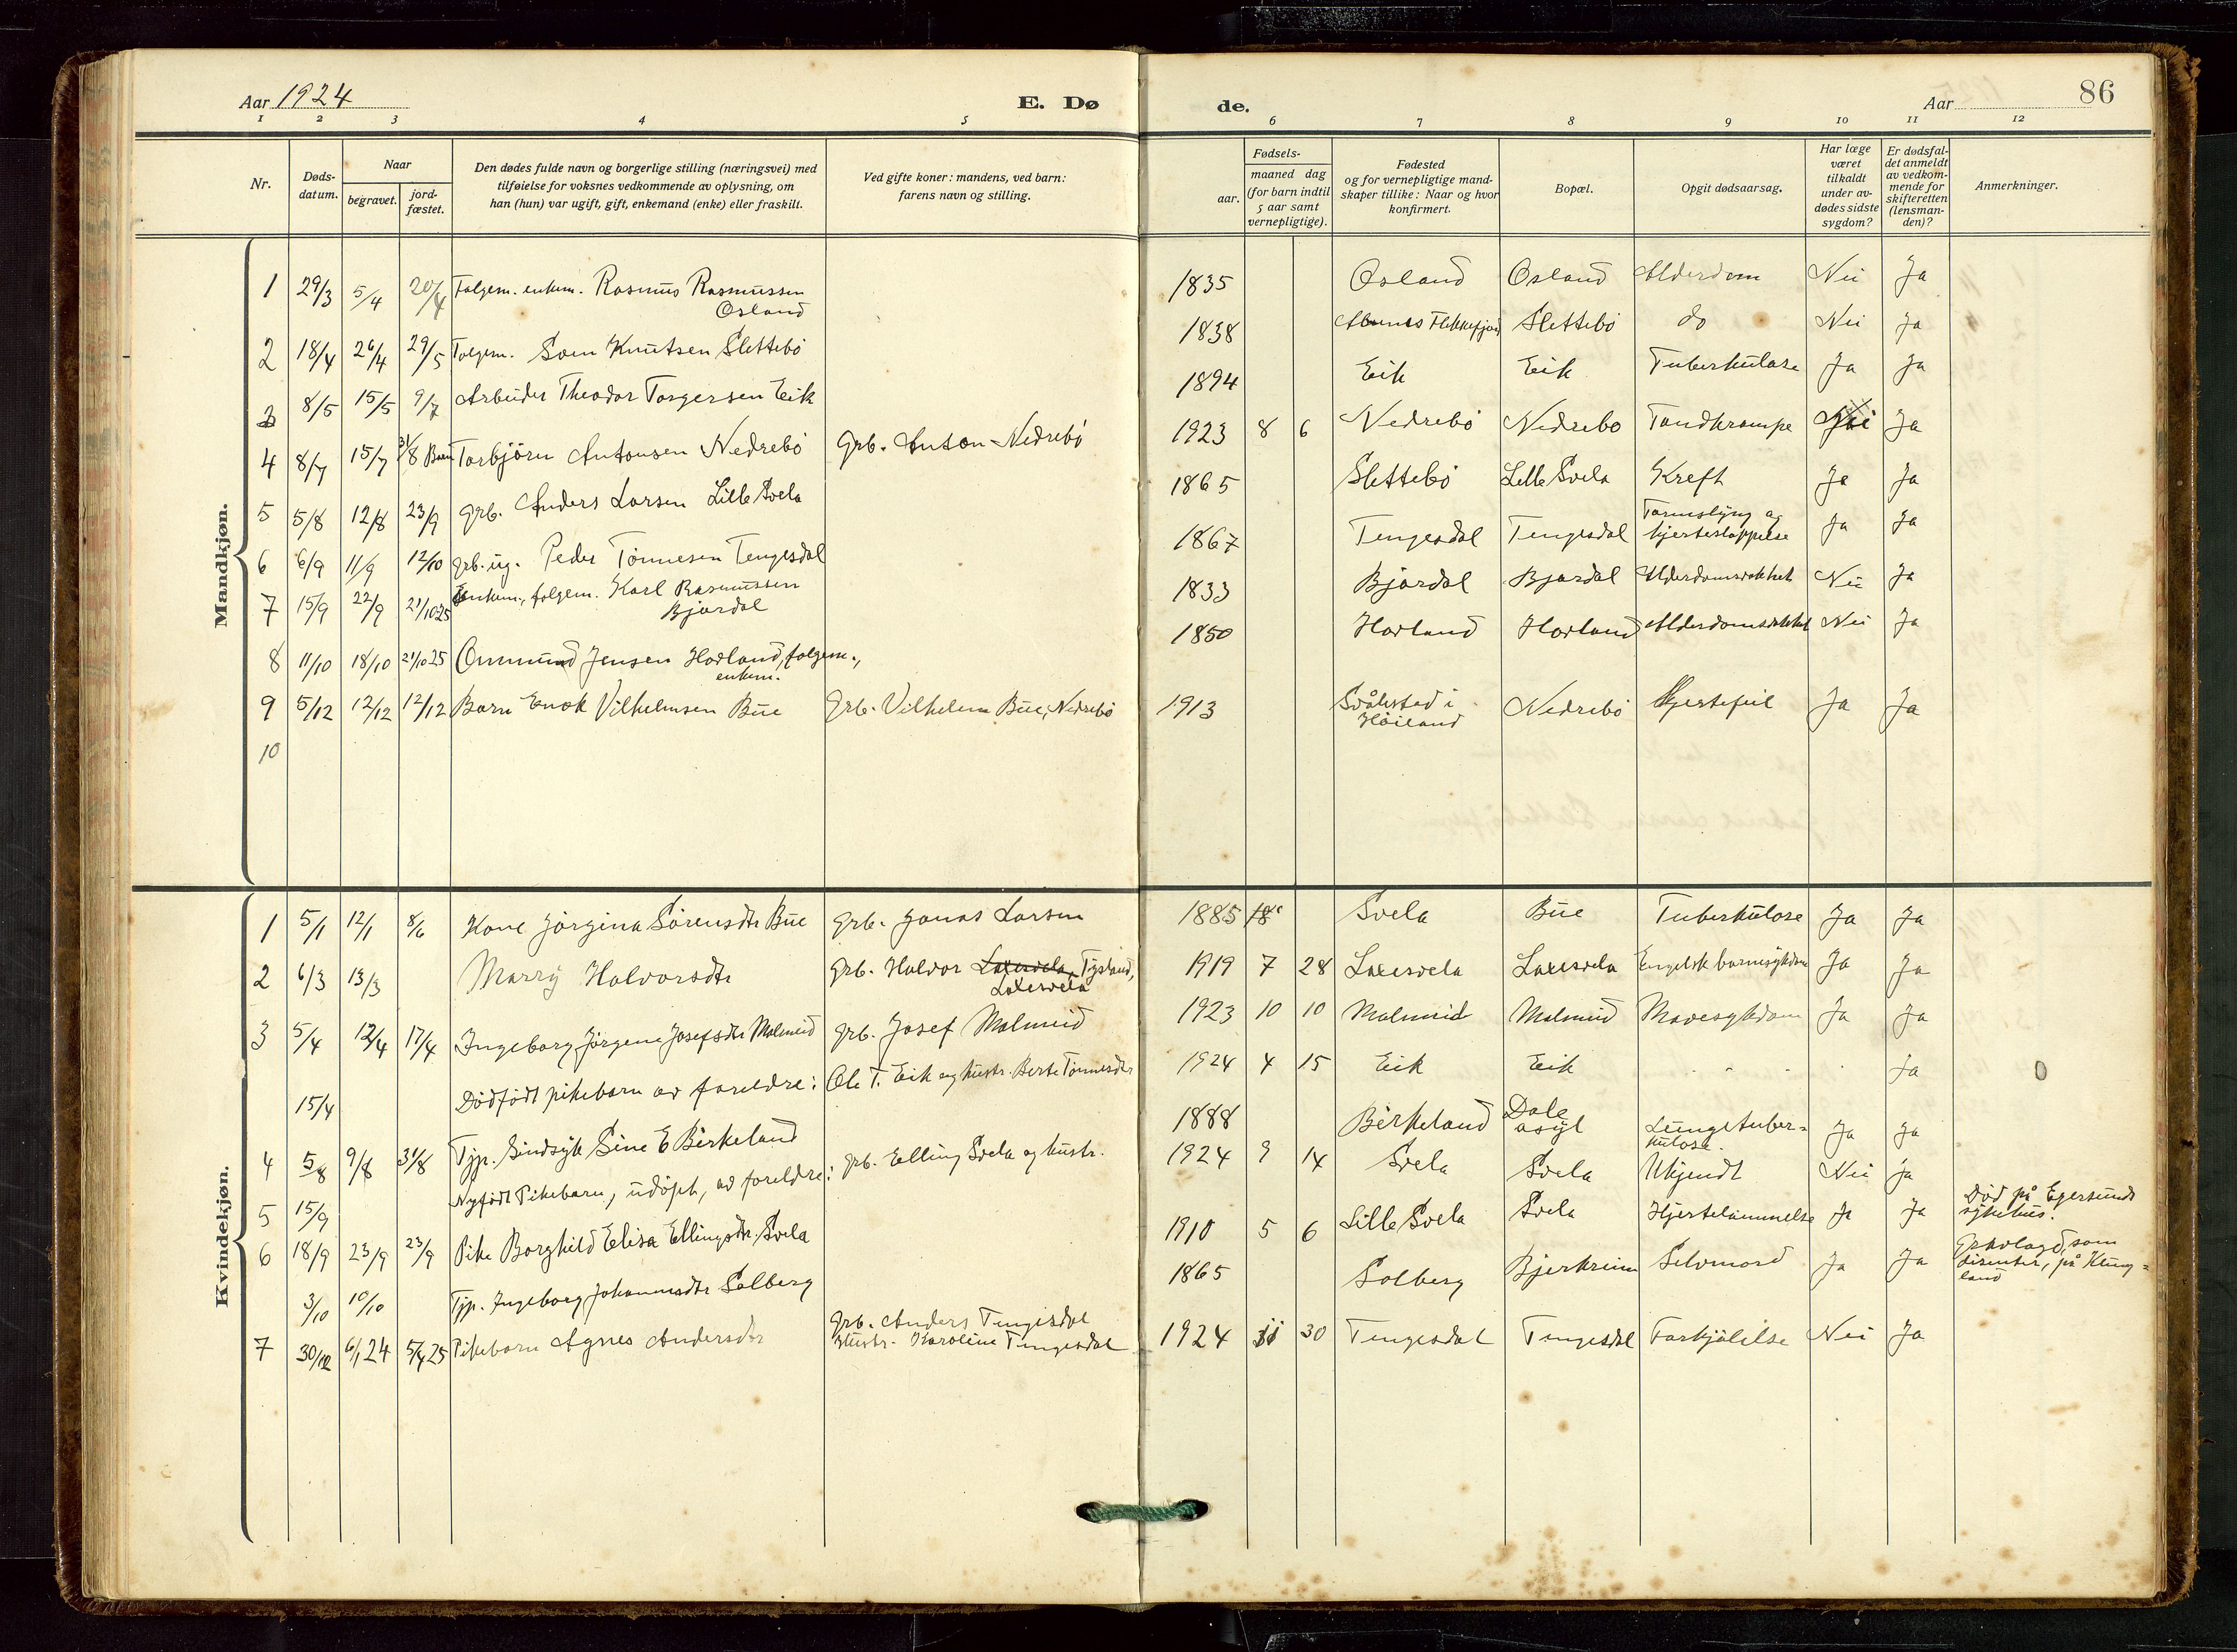 Aar 1924
E. Dø
de.
Aar
86
1 2 3 4 5 6 7 8 9 10 11 12
Nr.
Døds-
datum.
Naar
begravet.
jord-
fæstet.
Den dødes fulde navn og borgerlige stilling (næringsvei) med
tilføielse for voksnes vedkommende av oplysning, om
han (hun) var ugift, gift, enkemand (enke) eller fraskilt.
Ved gifte koner: mandens, ved barn:
farens navn og stilling.
Fødsels-
aar.
maaned dag
(for barn indtil
5 aar samt
vernepligtige).
Fødested
og for vernepligtige mand-
skaper tillike: Naar og hvor
konfirmert.
Bopæl.
Opgit dødsaarsag.
Har læge
været
tilkaldt
under av-
dødes sidste
sygdom?
Er dødsfal-
det anmeldt
av vedkom-
mende for
skifteretten
(lensman-
den)?
Anmerkninger.
Mandkjøn.
1 29/3 5/4 20/4 Folgem. enkem. Rasmus Rasmussen
Osland
1835 Osland Osland Alderdom Nei Ja
2 18/4 26/4 29/5 Folgem. Sven Knutsen Slettebö
1838 Flekkefjord Slettebö do Nei Ja
3 8/5 15/5 9/7 Arbeider Theodor Torgersen Eik
1894 Eik Eik Tuberkulose Ja Ja
4 8/7 15/7 31/8 Barn Torbjörn Antonsen Nedrebö Grb. Anton Nedrebö
1923 8 6 Nedrebö Nedrebö Tandkrampe Ja
5 5/8 12/8 23/9 Grb. Anders Larsen Lille Svela
1865 Slettebö Lille Svela Kreft Ja Ja
6 6/9 11/9 12/10 grb. ug. Peder Tönnesen Tengesdal
1867 Tengesdal Tengesdal Tarmslyng og
hjerteslappelse Ja Ja
7 15/9 22/9 21/10 25 Enkem., folgem. Karl Rasmussen
Bjordal
1833 Bjordal Bjordal Alderdomsvakhet Nei Ja
8 11/10 18/10 21/10 25 Ommund Jensen Hovland, folgem.,
enkem.
1850 Hovland Hovland Alderdomsvakhet Nei Ja
9 5/12 12/12 12/12 Barn Enok Vilhelmsen Bue Grb. Vilhelm Bue, Nedrebö
1913 Svålestad i
Höiland Nedrebö Hjertefeil Ja Ja
10
Kvindekjøn.
1 5/1 12/1 8/6 Kone Jörgina Sörensdtr Bue Grb. Jonas Larsen
1885 18 Svela Bue Tuberkulose Ja Ja
2 6/3 13/3 Marry Halvorsdtr Grb. Halvor Laxesvela Tysland,
Laxesvela
1919 7 28 Laxesvela Laxesvela Engelsk barnesykdom Ja Ja
3 5/4 12/4 17/4 Ingeborg Jörgine Josefsdtr Malmeid grb. Josef Malmeid
1923 10 10 Malmeid Malmeid Mavesykdom Ja Ja
15/4 Dödfödt pikebarn av foreldre: Ole T. Eik og hustr. Berte Tönnesdtr
1924 4 15 Eik Eik Ja 0
4 5/8 9/8 31/8 Tjp. Sindsyk Sine E Birkeland
1888 Birkeland Dale
asyl Lungetuber-
kulose. Ja Ja
5 15/9 Nyfödt Pikebarn, udöpt, av foreldre: grb. Elling Svela og hustr.
1924 9 14 Svela Svela Ukjendt Nei Ja
6 18/9 23/9 23/9 Pike Borghild Elisa Ellingsdtr. Svela
1910 5 6 Lille Svela Svela Hjertelammelse Ja Ja Död på Egersunds
sykehus.
3/10 10/10 Tjp. Ingeborg Johannesdtr Solberg
1865 Solberg Bjerkreim Selvmord Ja Ja som
disenter, på Klung-
land
7 30/12 6/1 24 5/4 25 Pikebarn Agnes Andersdtr Grb. Anders Tengesdal
Hustr. Karoline Tengesdal
1924 11 30 Tengesdal Tengesdal Forkjölelse Nei Ja